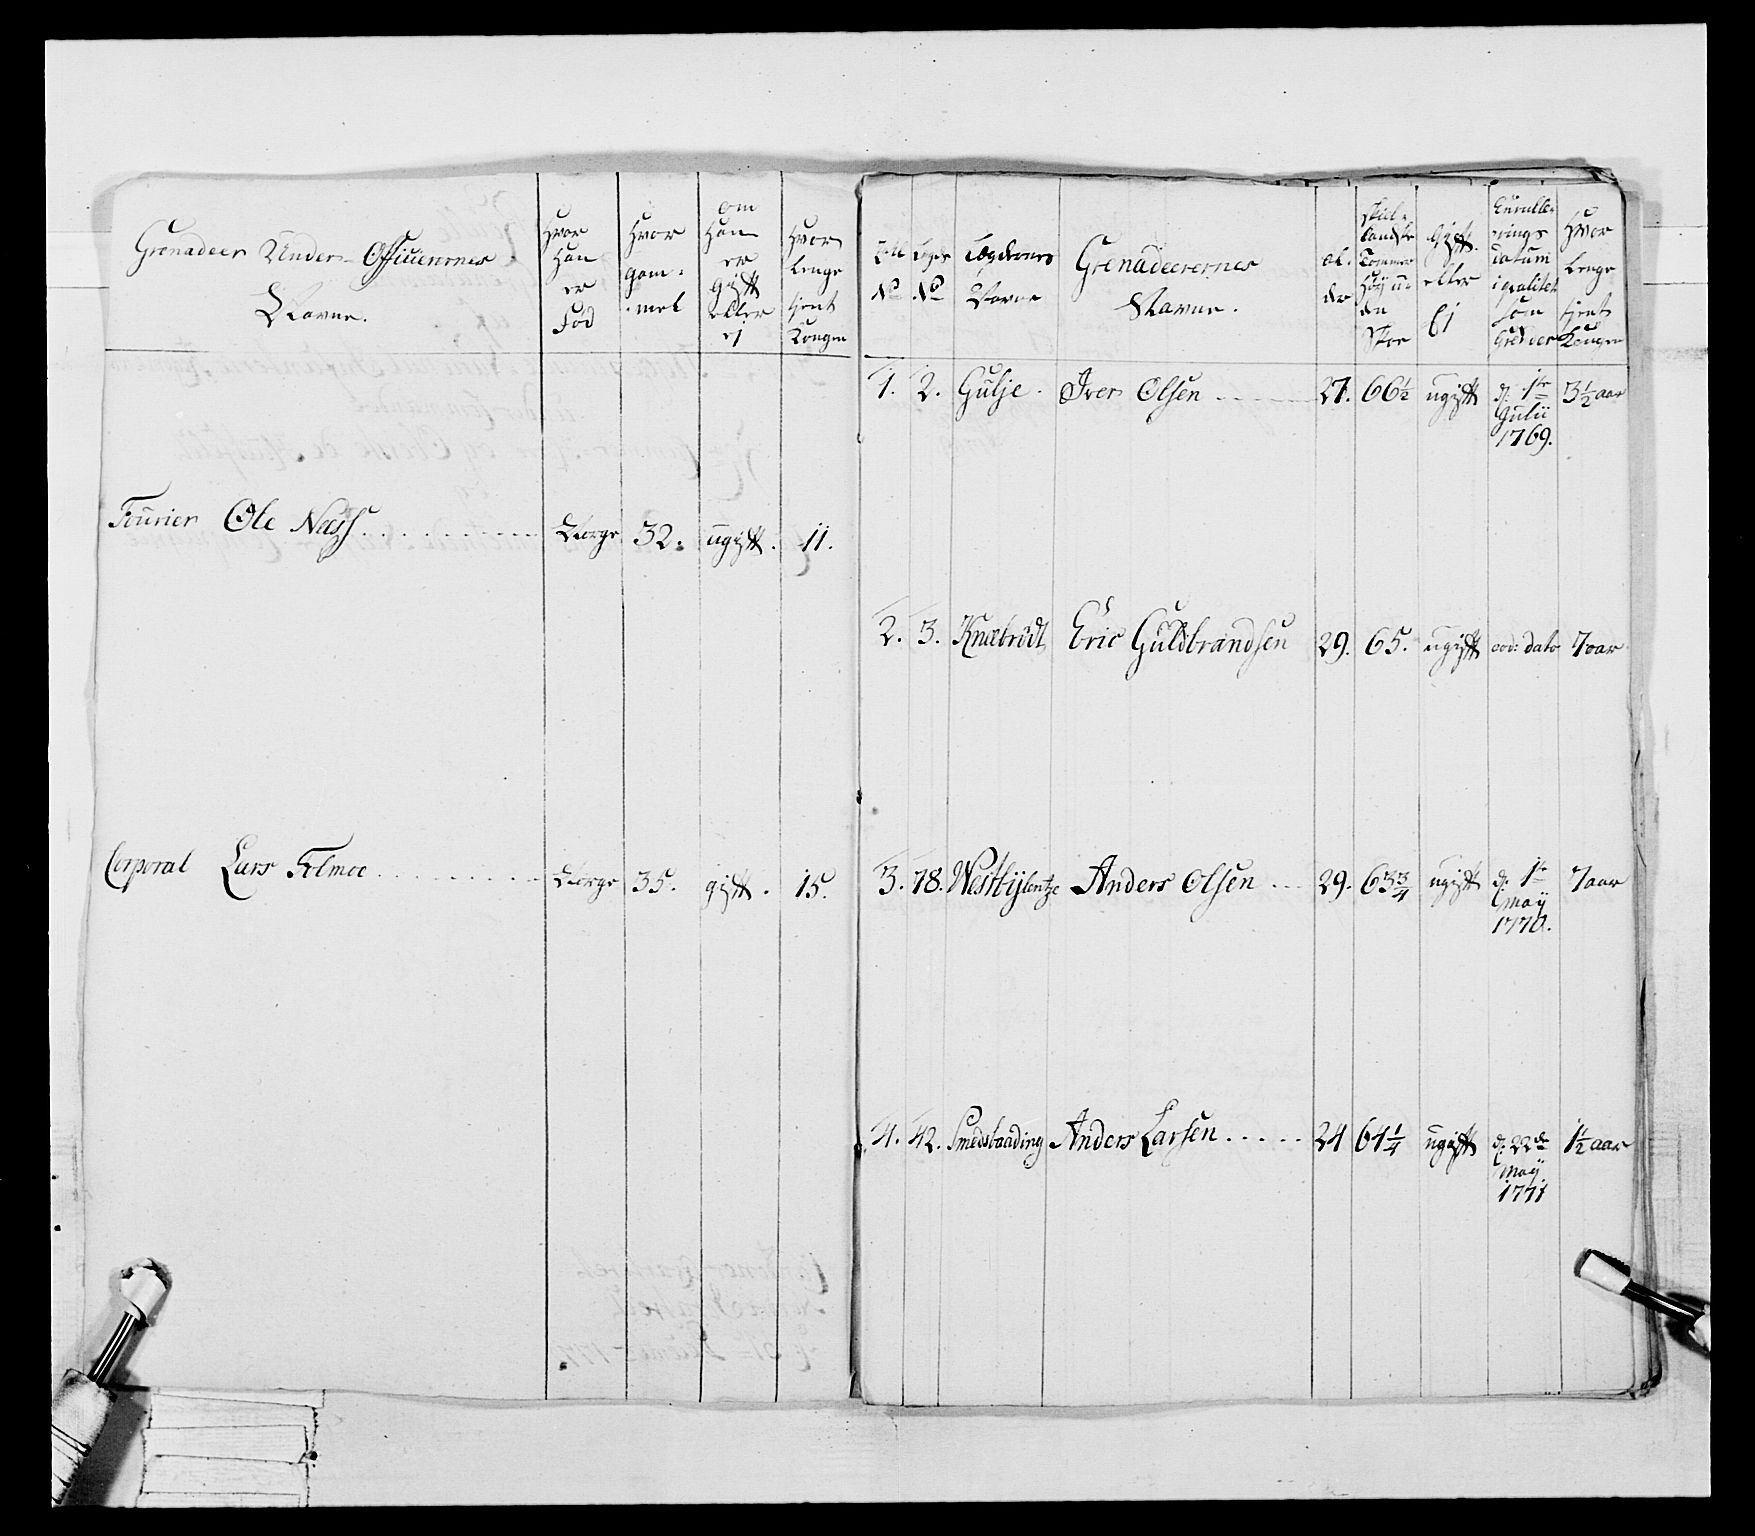 Grenadeer Under-Officierernes
Navne.
Hvor
Han
er
Fød
Hvor
gam-
mel
om
Han
er
gift
eller
ej
Hvor
lenge
tjent
Kongen
Fourier Ole Næss . . . . . . . . . . Norge 32. ugift. 11.
Corporal Lars Folmoe . . . . . . . . . Norge 35. gift. 15.
No
Legds
No
Legdernes
Navne
Grenadeerernes
Navne.
al-
der
Siæl-
landske
Tommer
Høy u-
den
Skoe
Gift
eller
Ej
Enrulle-
rings
datum
i qvalitet
som
Grenader
Hvor
lenge
tjent
Kongen
1. 2. Gulje. Iver Olsen . . . . . 27. 66½ ugift d: 1te 3½ aar
Julii
1769.
2. 3. Knæbrødt Eric Guldbrandsen 29. 65. ugift eod: dato 7 aar
3. 78. Westbÿ Anders Olsen . . . 29. 63¾ ugift d: 1te 7 aar
Maÿ
1770.
4. 42. Smedsbaading Anders Larsen . . . . . 24 64¼ ugift d: 22de 1½ aar
Maÿ
1771